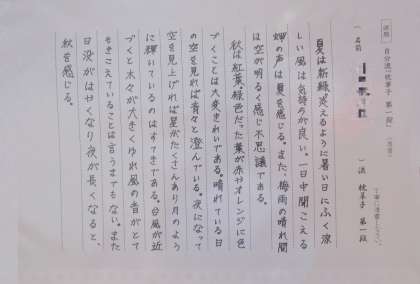 課題 自分流「枕草子 第一段」(清書)
丁寧に清書しなさい。
(名前 )流 枕草子 第一段
夏は新緑冴えるように暑い日にふく涼
しい風は気持ちが良い。一日中聞こえる
蝉の声は夏を感じる。また、梅雨の晴れ間
は空が明るく感じ不思議である。
秋は紅葉。緑色だった葉が赤やオレンジに色
づくことは大変きれいである。晴れている日
の空を見れば青々と澄んでいる。夜になって
空を見上げれば星がたくさんあり月のよう
に輝いているのはすてきである。台風が近
づくと木々が大きくゆれ風の音がとて
もきこえていることは言うまでもない。また
日没がはやくなり夜が長くなると、
秋を感じる。